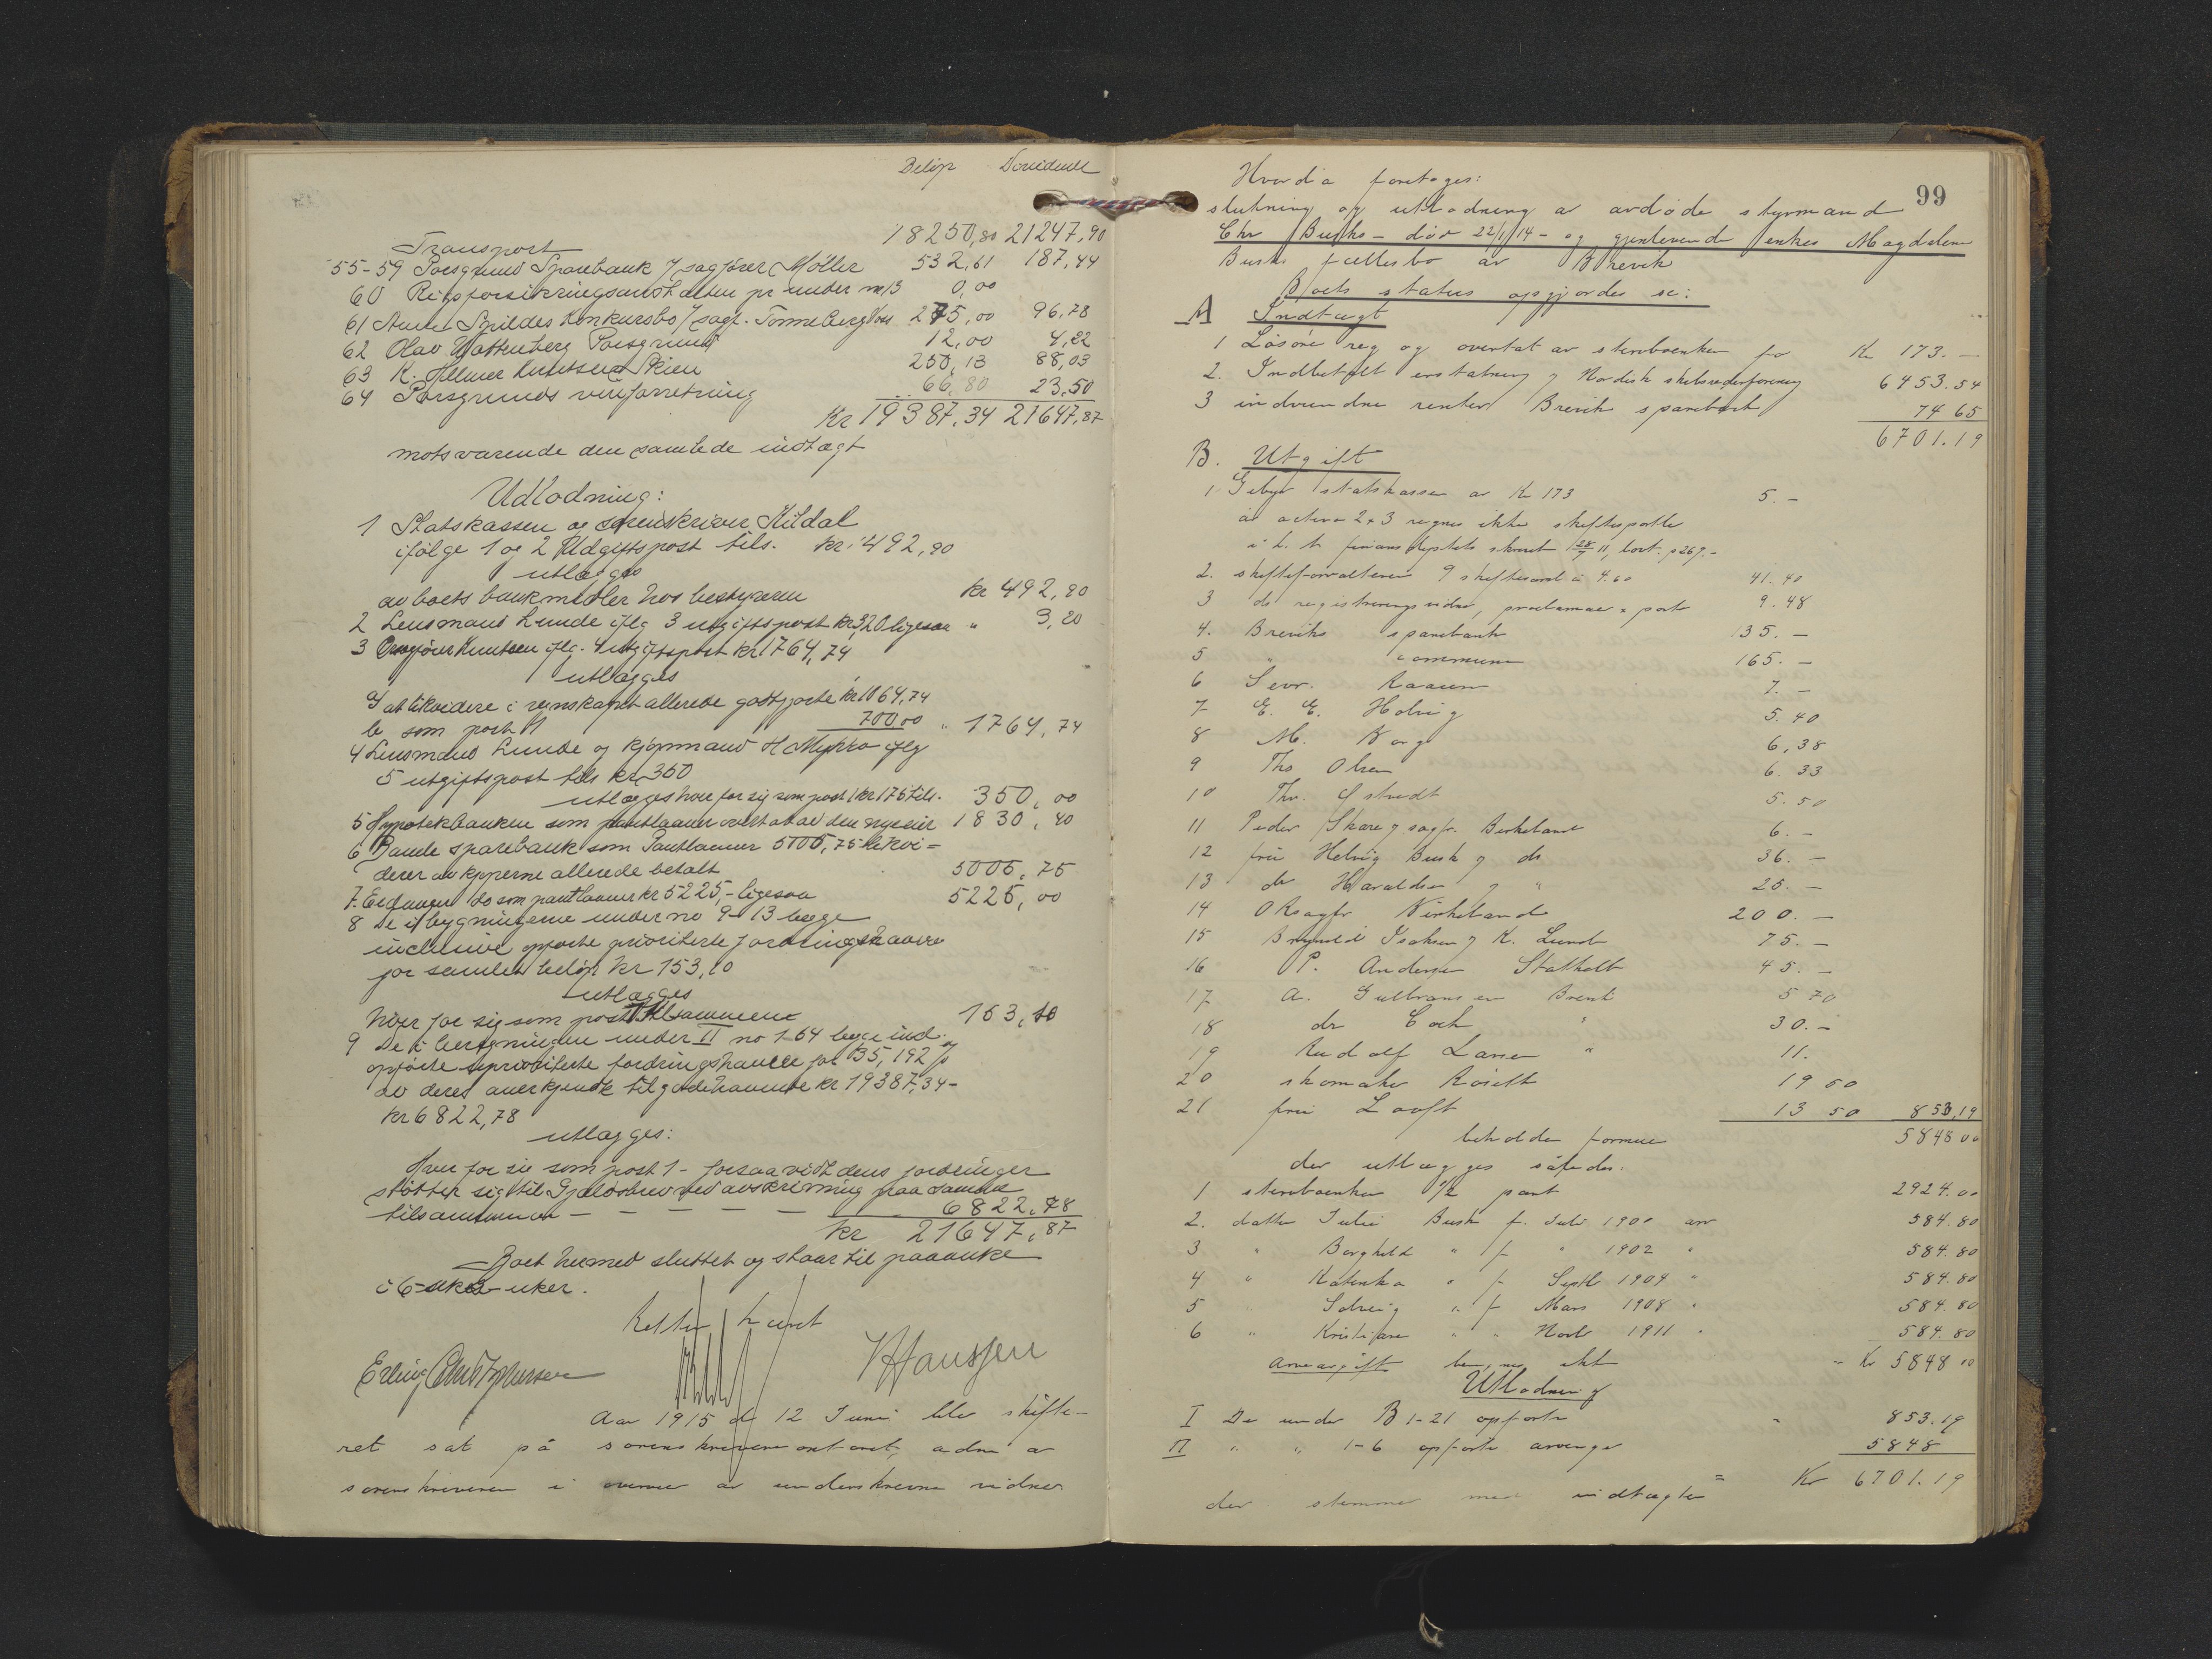 Belöp Dividende
Transport 18250,80 21247,90
55-59 Porsgrund Sparebank v/ sagförer Möller 532,61 187,44
60 Rigsforsikringsanstalten pr under nr 13 0,00
61 Spildes Konkursbo v/ sagf. Tønneberg 275,00 96,78
62 Olav Wattenberg Porsgrund 12,00 4,22
63 K. Hilmer Knutsen Skien 250,13 88,03
64 Porsgrunds vinforretning 66,80 23,50
Kr 19387,34 21647,87
motsvarende den samlede indtægt
Udlodning:
1 Statskassen og sorenskriver Kildal
ifölge 1 og 2 Udgiftspost tils. kr. 492,90
utlægges
av boets bankmidler hos bestyreren kr 492,90
2 Lensmand Lunde iflg 3 utgiftspost kr 3,20 ligesaa " 3,20
3 Knutsen iflg. 4 utgiftspost kr 1764,74
utlægges
I at likvidere i regnskapet allerede godtgjorte kr 1064,74
le som post 1 700,00 " 1764,74
4 Lensmand Lunde og kjöpmand H Myhra iflg
5 utgiftspost tils kr 350
utlægges hver for sig som post 1 kr 175 tils. 350,00
5 Hypotekbanken som pantlaaner overtat av den nye eier 1830,40
6 Bamle sparebank som Pantlaaner 5005,75 likvi-
derer av kjøperne allerede betalt 5005,75
7. Eidanger do som pantlaaner kr 5225,- ligesaa 5225,00
8 De i bygningerne under no 9-13 begge
inclusive opförte prioriterte fordringshavere
for samlet belöp kr 153,10
utlægges
hver for sig som post 1 tilsammen 153,10
9 De i beregningen under II no 1-64 begge incl.
opförte uprioriterte fordringshavere for 35,192 %
av deres anerkjendte tilgodehavende kr 19387,34-
kr 6822,78
utlægges:
Hver for sig som post 1 - forsaavidt deres fordringer
støtter sig til Gjældsbrev ved avskrivning paa samme
tilsammen - - - - - 6822,78
kr 21647,87
Boet hermed sluttet og staar til paaanke
i 6 uker.
Retten hævet
Hanssen
Aar 1915 d 12 Juni ble skifte-
ret sat på sorenskriverkontoret, adm av
sorenskriveren i overvær av underskrevne vidner
99
Hvorda foretoges:
slutning og utlodning av avdøde styrmand
Chr Busks - død 22/1/14 - og gjenlevende enkes Magdalene
Busks fællesbo av Brevik
Boets status opgjordes så:
A Indtægt
1 Løsøre reg og overtat av stervboenken for Kr 173.-
2. Indbetalt erstatning v Nordisk skibsrederforening 6453.54
3 indvundne renter Brevik sparebank 74 65
6701.19
B. Utgift
1 Gebyr statskassen av Kr 173 5.-
av activa 2 & 3 regnes ikke skiftesportler
2. skifteforvalteren 9 skiftesaml à 4.60 41.40
3 do registreringsvidner, proclamaer & porto 9.48
4. Breviks sparebank 135.-
5 " commune 165.-
6 Sevr. Raaum 7.-
7 E. E. Holvig 5.40
8 M. Borge 6,38
9 Ths Olsen 6.33
10 Thv. 5.50
11 Peder Skare v sagfr. Birkeland 6.-
12 fru Helvig Busk v do 36.-
13 do Haraldsen v " 25.-
14 ORsagfr Birkeland 200.-
15 Brynild Isaksen v K. Lund 75.-
16 P. Andersen Stathelle 45.-
17 A. Gulbransen Brevik 5 70
18 dr Coch " 30.-
19 Rudolf Larsen " 11.
20 skomaker 19 60
21 fru Looft 13 50 853,19
beholden formue 5848 00
der utlægges således:
1 stervboenken 1/2 part 2924.00
2. datter Julie Busk f. Juli 1900 arv 584.80
3 " Borghild " f " 1902 " 584.80
4 " Katinka " f Septb 1904 " 584.80
5 " Solveig " f Mars 1908 " 584.80
6 " Kristiane " " Novb 1911 " 584.80
Arveavgift beregnes ikke - Kr 5848 00
Utlodning
I De under B 1-21 opførte " 853.19
II " " 1-6 opførte arvinger 5848
= Kr 6701.19
der stemmer med indtægten